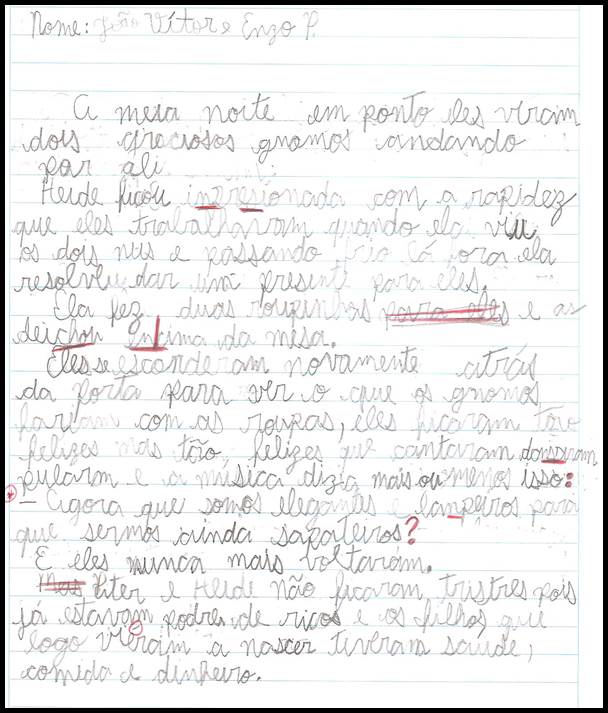 Nome: João Vítor e Enzo P.
A meia noite em ponto eles viram
dois graciosos gnomos andando
por ali.
Heide ficou inpresionada com a rapidez
que eles trabalhavam quando ela viu
os dois nus e passando frio lá fora ela
resolveu dar um presente para eles.
Ela fez duas roupinhas para eles e as
deichou encima da mesa.
Eles se esconderam novamente atrás
da porta para ver o que os gnomos
fariam com as roupas, eles ficaram tão
felizes mas tão felizes que cantaram dansaram
pularm e a música dizia mais ou menos isso:
— Agora que somos elegantes e lampeiros para
que sermos ainda sapateiros?
E eles nunca mais voltaram.
Mas Piter e Heide não ficaram tristres pois
já estavam podres de ricos e os filhos que
logo vieram a nascer tiveram saúde,
comida e dinheiro.